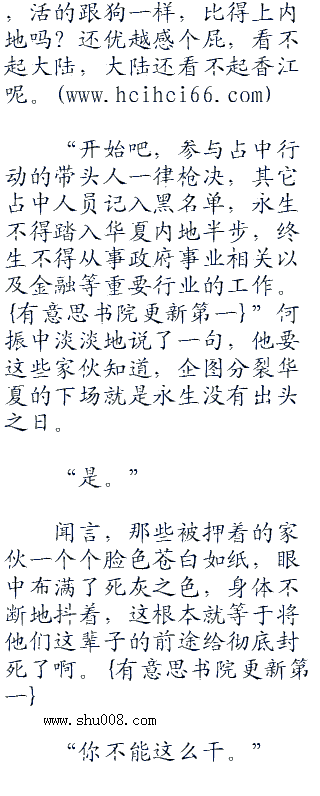 ，活的跟狗一样，比得上内
地吗？还优越感个屁，看不
起大陆，大陆还看不起香江
呢。(www.hcihci66.com)
“开始吧，参与占中行
动的带头人一律枪决，其它
占中人员记入黑名单，永生
不得踏入华夏内地半步，终
生不得从事政府事业相关以
及金融等重要行业的工作。
{有意思书院更新第一}”何
振中淡淡地说了一句，他要
这些家伙知道，企图分裂华
夏的下场就是永生没有出头
之日。
“是。”
闻言，那些被押着的家
伙一个个脸色苍白如纸，眼
中布满了死灰之色，身体不
断地抖着，这根本就等于将
他们这辈子的前途给彻底封
死了啊。{有意思书院更新第
一}
www.shu008.com
“你不能这么干。”